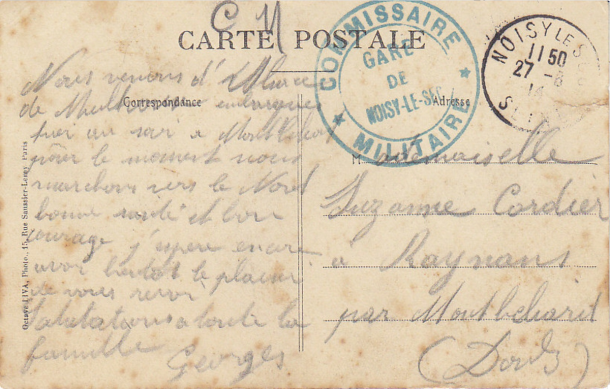 C M
CARTE POSTALE
Correspondance
Adresse
COMMISSAIRE MILITAIRE
GARE
DE
NOISY-LE-SEC
NOISY LE S
11 50
27 -8
14
Nous venons d'Alsace
de embarqués
hier au soir à Montbeliard
pour le moment nous
marchons vers le Nord
bonne santé et bon
courage j'espere encore
avoir bientot le plaisir
de vous revoir
Salutations a toute la
famille
Georges
Mademoiselle
Suzanne Cordier
à Raynans
par Montbeliard
(Doubs)
Photo., 15, Rue Saussier-Leroy Paris